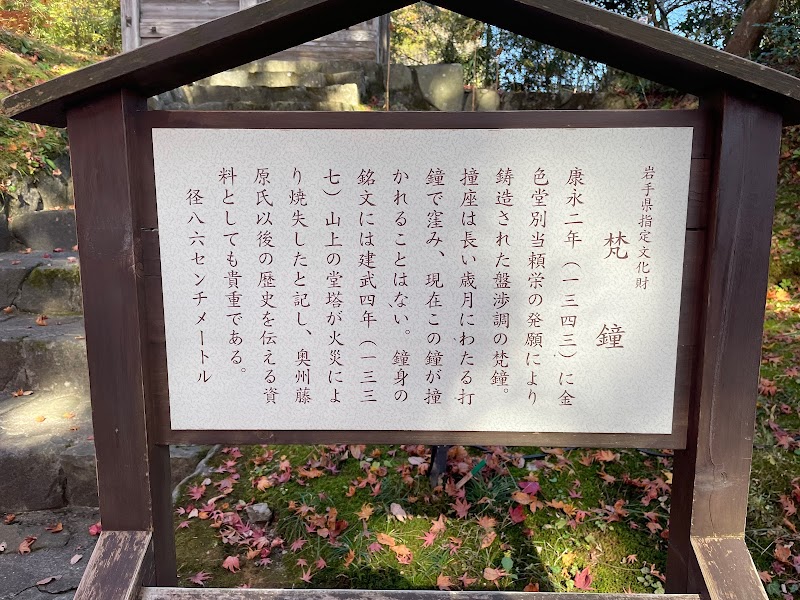 岩手県指定文化財
梵鐘
康永二年（一三四三）に金
色堂別当頼栄の発願により
鋳造された盤渉調の梵鐘。
撞座は長い歳月にわたる打
鐘で窪み、現在この鐘が撞
かれることはない。鐘身の
銘文には建武四年（一三三
七）山上の堂塔が火災によ
り焼失したと記し、奥州藤
原氏以後の歴史を伝える資
料としても貴重である。
径八六センチメートル